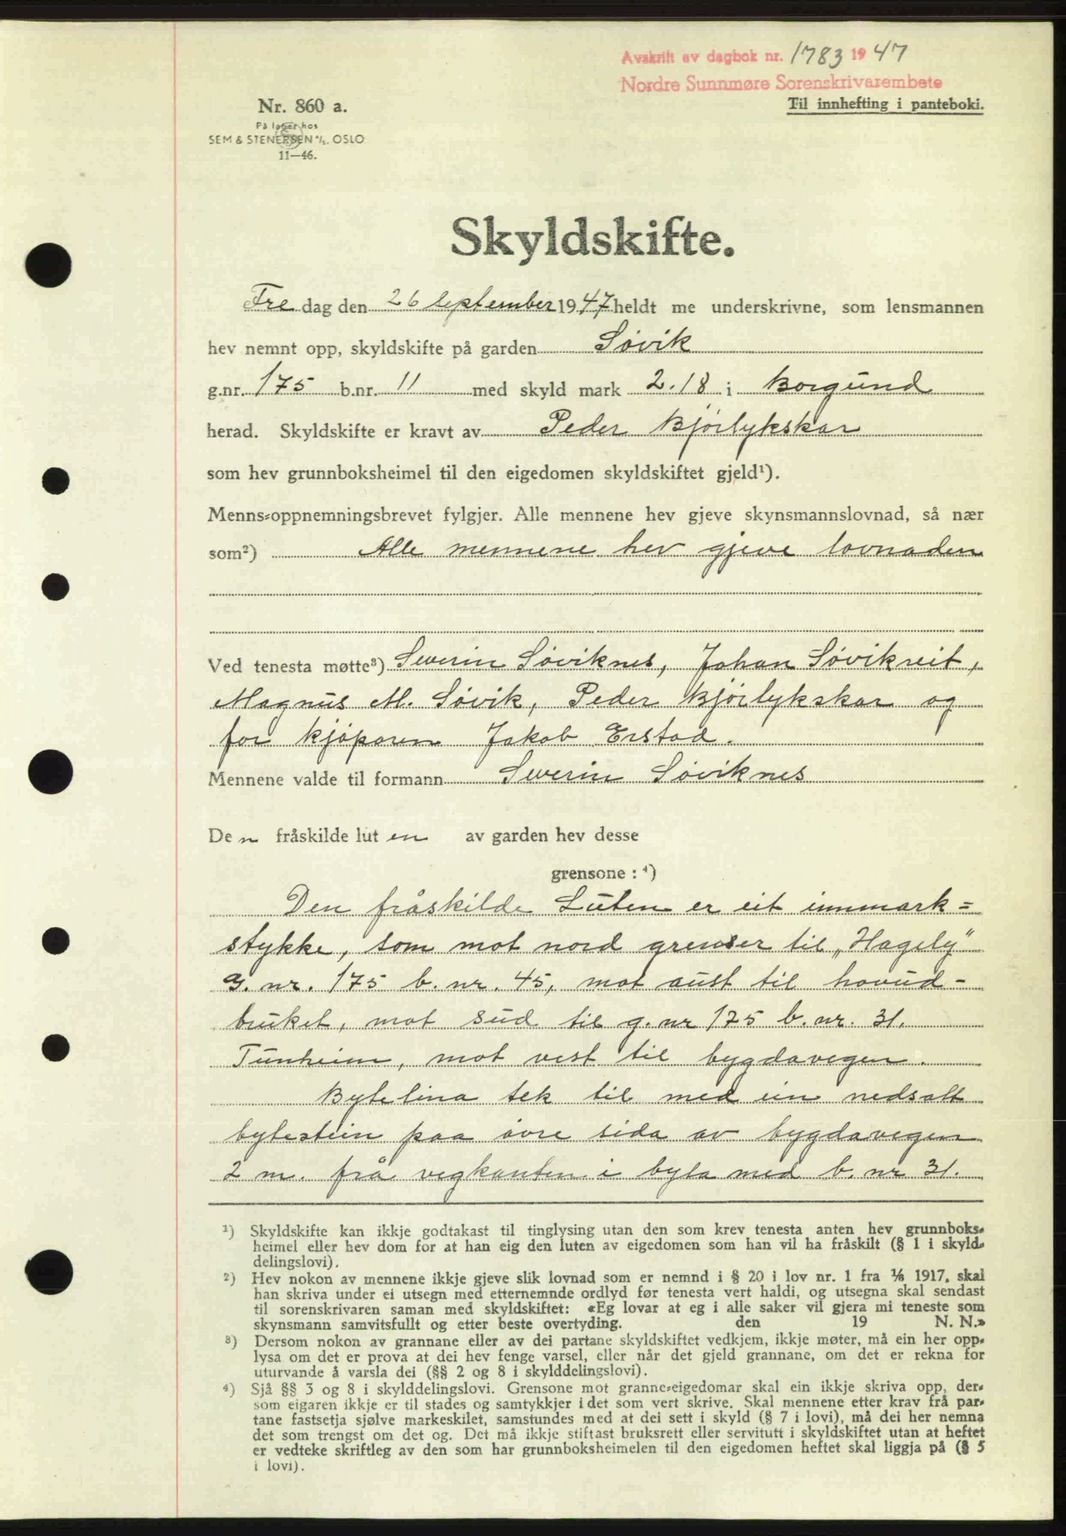 Avskrift av dagbok nr. 1783 1947
Nordre Sunnmøre Sorenskrivarembete
Til innhefting i panteboki.
Nr. 860 a.
På lager hos
SEM & STENERSEN A/S. OSLO
11—46.
Skyldskifte.
Fre dag den 26 september 1947 heldt me underskrivne, som lensmannen
hev nemnt opp, skyldskifte på garden Søvik
g.nr. 175 b.nr. 11 med skyld mark 2.18 i Borgund
herad. Skyldskifte er kravt av Peder Bjørlykskar
som hev grunnboksheimel til den eigedomen skyldskiftet gjeld¹).
Menns-oppnemningsbrevet fylgjer. Alle mennene hev gjeve skynsmannslovnad, så nær
som²) Alle mennene hev gjeve lovnaden
Ved tenesta møtte³) Severin Søviknes, Johan Søvikneit,
Magnus M. Søvik, Peder Bjørlykskar og
for kjøparen Jakob Erstad.
Mennene valde til formann Severin Søviknes
Den fråskilde luten av garden hev desse
grensone: ⁴)
Den fråskilde Luten er eit innmark=
stykke, som mot nord grenser til „Hagely"
g. nr. 175 b. nr. 45, mot aust til hovud-
bruket, mot sud til g. nr 175 b. nr. 31.
Tunheim, mot vest til bygdavegen.
Bytelina tek til med ein nedsatt
bytestein paa øvre sida av bygdavegen
2 m. frå vegkanten i byta med b. nr 31.
¹) Skyldskifte kan ikkje godtakast til tinglysing utan den som krev tenesta anten hev grunnboks-
heimel eller hev dom for at han eig den luten av eigedomen som han vil ha fråskilt (§ 1 i skyld-
delingslovi).
²) Hev nokon av mennene ikkje gjeve slik lovnad som er nemnd i § 20 i lov nr. 1 fra 1/6 1917, skal
han skriva under ei utsegn med etternemnde ordlyd før tenesta vert haldi, og utsegna skal sendast
til sorenskrivaren saman med skyldskiftet: «Eg lovar at eg i alle saker vil gjera mi teneste som
skynsmann samvitsfullt og etter beste overtyding. den 19 N. N.»
³) Dersom nokon av grannane eller av dei partane skyldskiftet vedkjem, ikkje møter, må ein her opp-
lysa om det er prova at dei hev fenge varsel, eller når det gjeld grannane, om det er rekna for
uturvande å varsla dei (§§ 2 og 8 i skylddelingslovi).
⁴) Sjå §§ 3 og 8 i skylddelingslovi. Grensone mot granne-eigedomar skal ein ikkje skriva opp, der-
som eigaren ikkje er til stades og samtykkjer i det som vert skrive. Skal mennene etter krav frå par-
tane fastsetja sjølve markeskilet, samstundes med at dei sett i skyld (§ 7 i lovi), må dei her nemna
det som trengst om det og. Det må ikkje stiftast bruksrett eller servitutt i skyldskiftet utan at heftet
er vedteke skriftleg av den som har grunnboksheimelen til den eigedomen heftet skal liggja på (§ 5
i lovi).